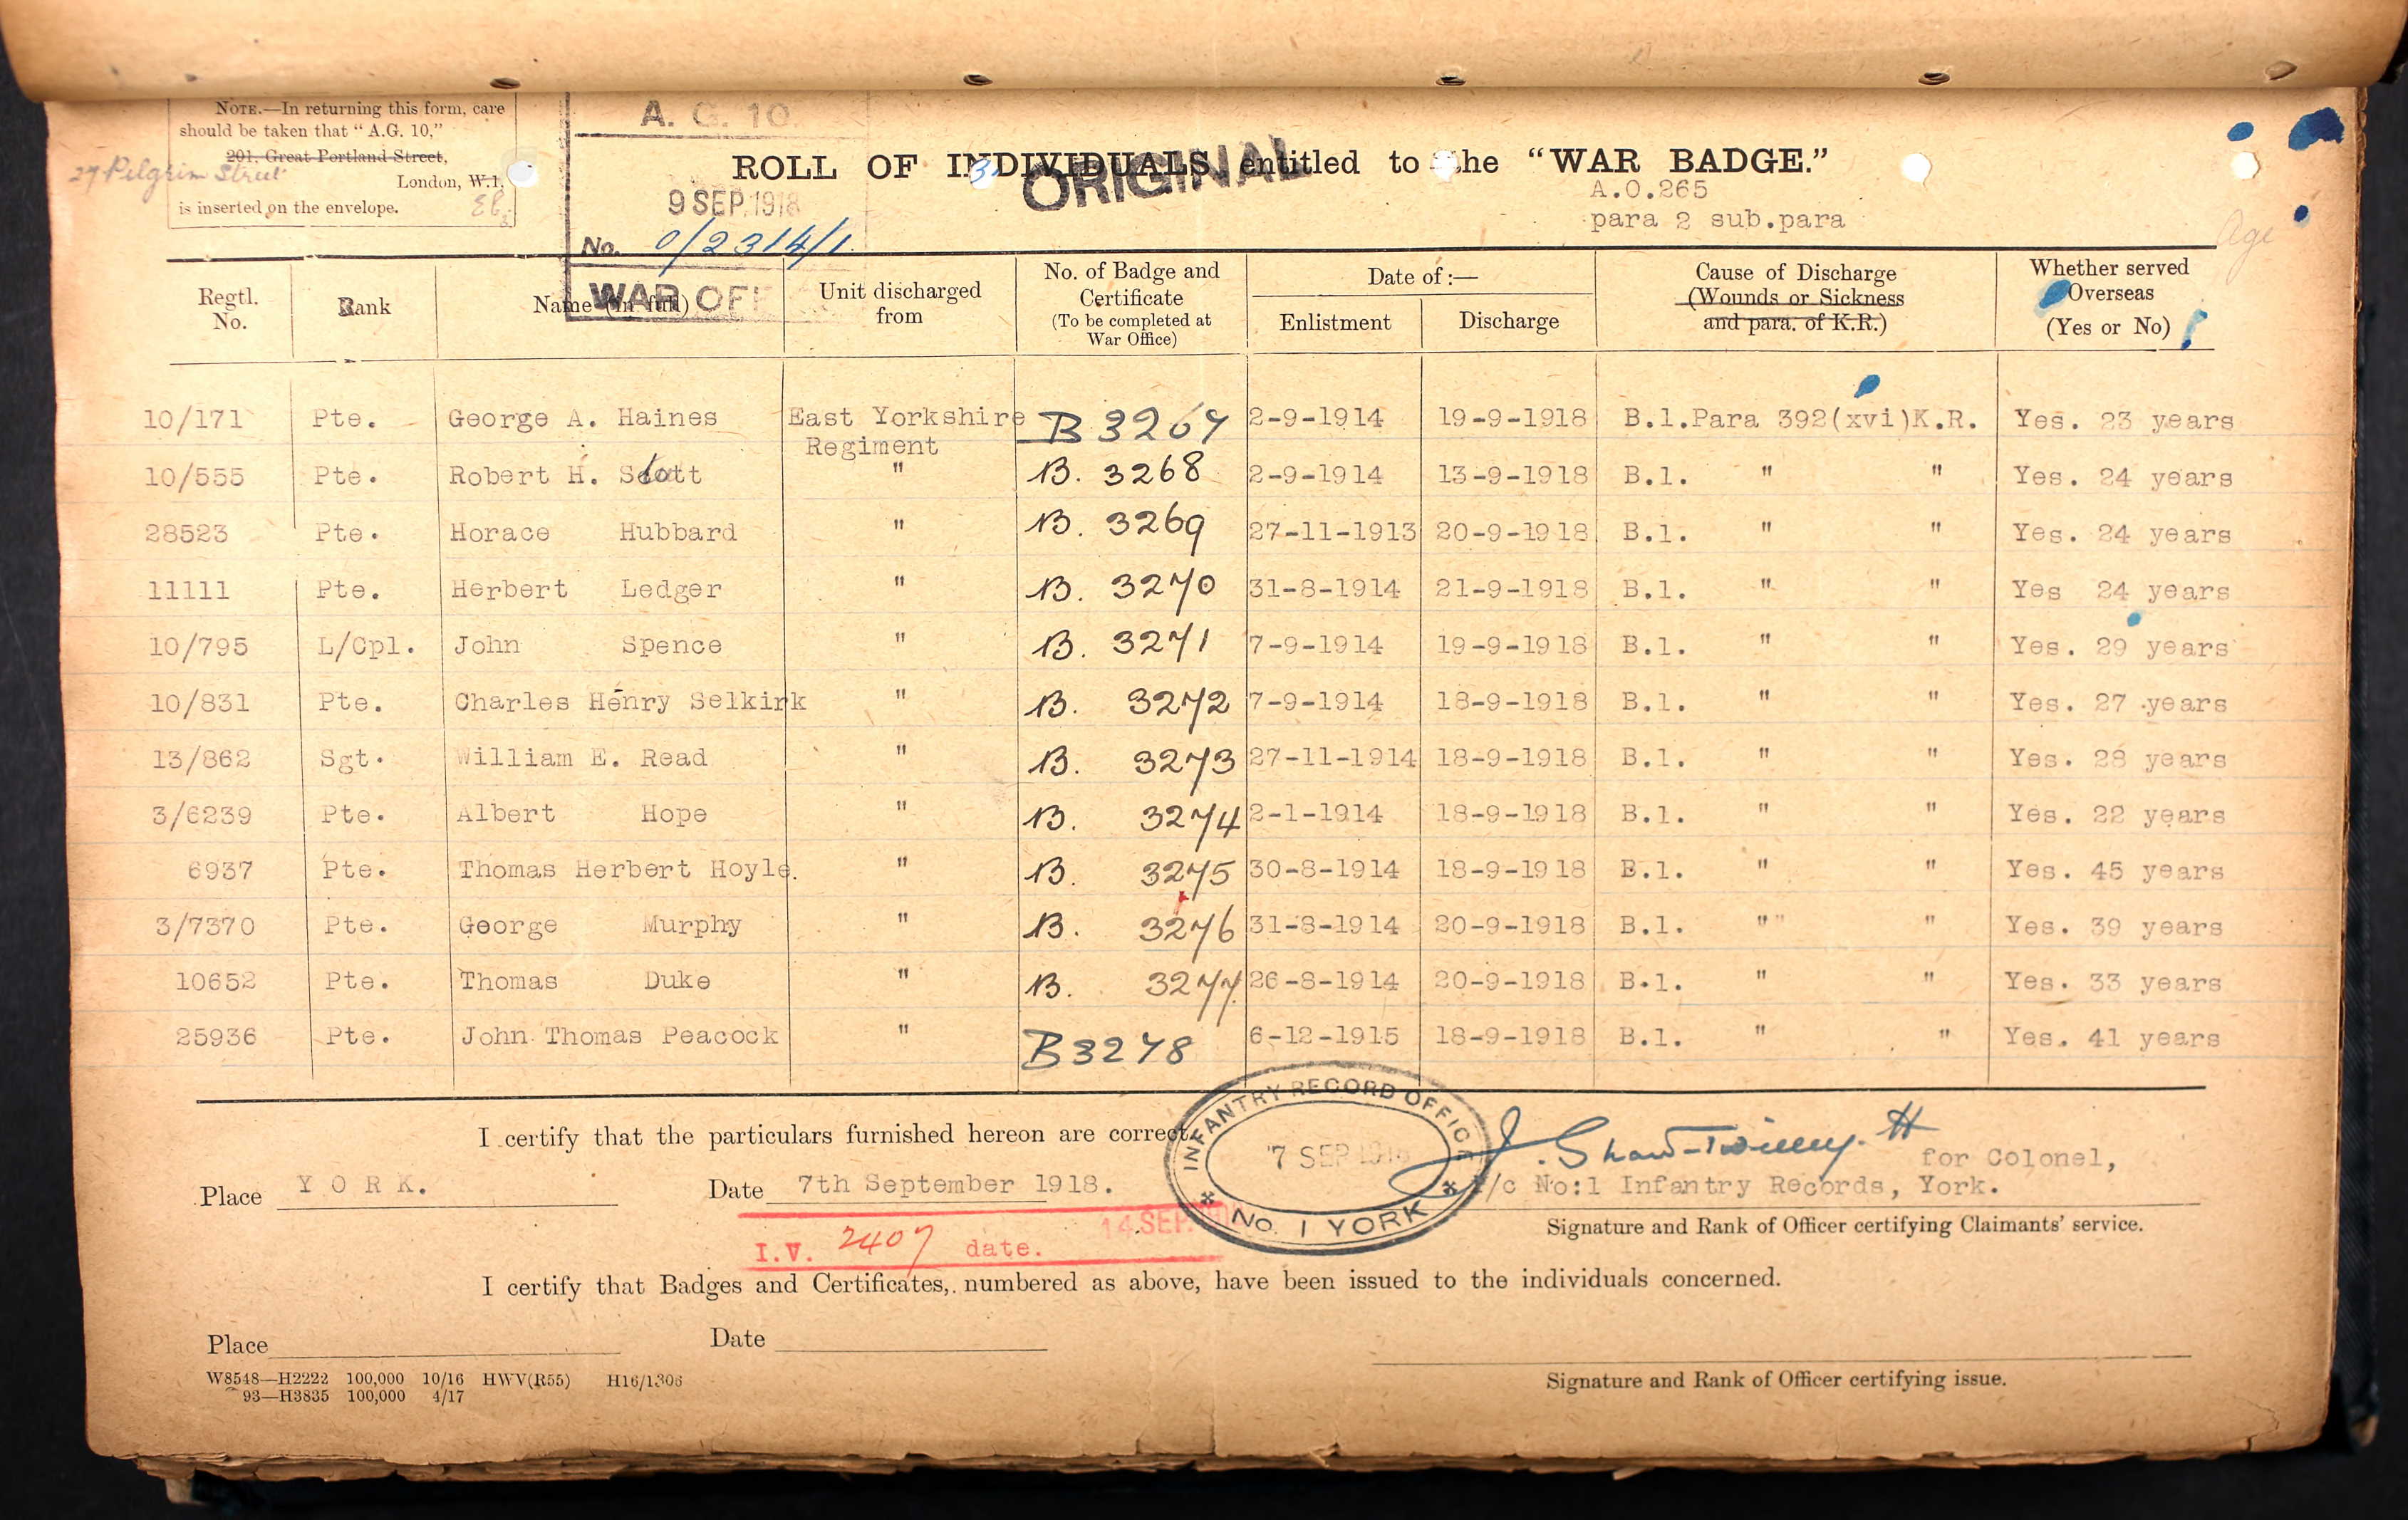 NOTE.—In returning this form, care
should be taken that "A.G. 10,"
201, Great Portland Street,
27 Pilgrim Street
London, W.1,
is inserted on the envelope.
A. G. 10
9 SEP. 1918
No. 0/2314/1
WAR OF
ROLL OF INDIVIDUALS entitled to the "WAR BADGE."
ORIGINAL
A.O.265
para 2 sub.para
Age
Regtl. No. Rank Name (in full) Unit discharged from No. of Badge and Certificate (To be completed at War Office) Date of:— Enlistment Discharge Cause of Discharge (Wounds or Sickness and para. of K.R.) Whether served Overseas (Yes or No)
10/171 Pte. George A. Haines East Yorkshire B 3267 2-9-1914 19-9-1918 B.1.Para 392(xvi)K.R. Yes. 23 years
Regiment
10/555 Pte. Robert H. " B. 3268 2-9-1914 13-9-1918 B.1. " " Yes. 24 years
28523 Pte. Horace Hubbard " B. 3269 27-11-1913 20-9-1918 B.1. " " Yes. 24 years
11111 Pte. Herbert Ledger " B. 3270 31-8-1914 21-9-1918 B.1. " " Yes 24 years
10/795 L/Cpl. John Spence " B. 3271 7-9-1914 19-9-1918 B.1. " " Yes. 29 years
10/831 Pte. Charles Henry Selkirk " B. 3272 7-9-1914 18-9-1918 B.1. " " Yes. 27 years
13/862 Sgt. William E. Read " B. 3273 27-11-1914 18-9-1918 B.1. " " Yes. 28 years
3/6239 Pte. Albert Hope " B. 3274 2-1-1914 18-9-1918 B.1. " " Yes. 22 years
6937 Pte. Thomas Herbert Hoyle. " B. 3275 30-8-1914 18-9-1918 B.1. " " Yes. 45 years
3/7370 Pte. George Murphy " B. 3276 31-8-1914 20-9-1918 B.1. " " Yes. 39 years
10652 Pte. Thomas Duke " B. 3277 26-8-1914 20-9-1918 B.1. " " Yes. 33 years
25936 Pte. John Thomas Peacock " B3278 6-12-1915 18-9-1918 B.1. " " Yes. 41 years
I certify that the particulars furnished hereon are correct.
INFANTRY RECORD OFFICE
7 SEP 1918
No. 1 YORK
for Colonel,
Place YORK. Date 7th September 1918.
I/c No:1 Infantry Records, York.
Signature and Rank of Officer certifying Claimants' service.
14 SEP.
I.V. 2407 date.
I certify that Badges and Certificates, numbered as above, have been issued to the individuals concerned.
Place Date
W8548—H2222 100,000 10/16 HWV(R55) H16/1306
93—H3835 100,000 4/17
Signature and Rank of Officer certifying issue.